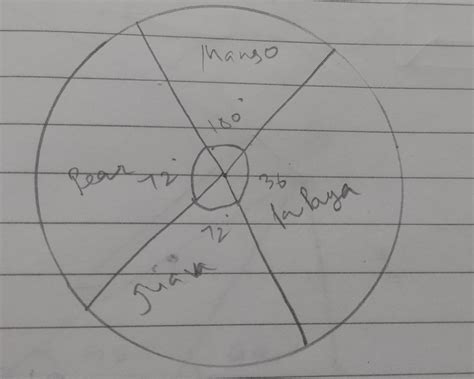 Mango
180°
Pear 72° 36°
Papaya
72°
Guava